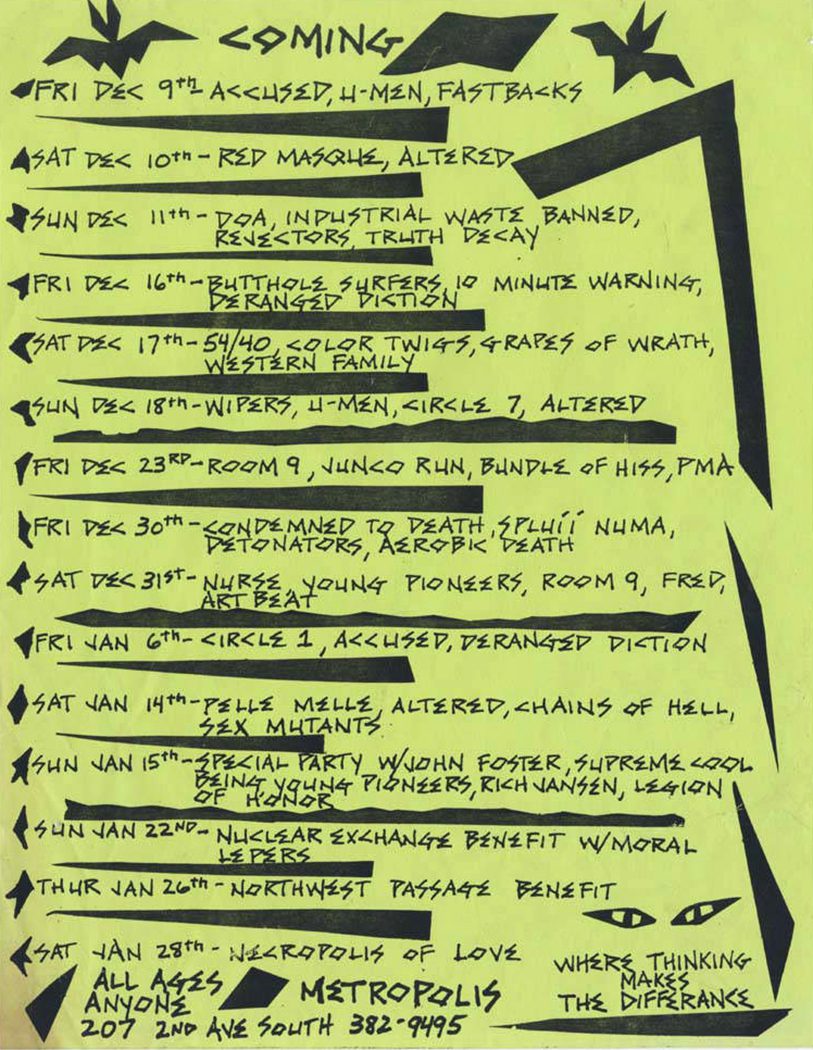 COMING
FRI DEC 9th - ACCUSED, U-MEN, FASTBACKS
SAT DEC 10th - RED MASQUE, ALTERED
SUN DEC 11th - DOA, INDUSTRIAL WASTE BANNED,
REJECTORS, TRUTH DECAY
FRI DEC 16th - BUTTHOLE SURFERS, 10 MINUTE WARNING,
DERANGED DICTION
SAT DEC 17th - 54/40, COLOR TWIGS, GRAPES OF WRATH,
WESTERN FAMILY
SUN DEC 18th - WIPERS, U-MEN, CIRCLE 7, ALTERED
FRI DEC 23RD - ROOM 9, JUNCO RUN, BUNDLE OF HISS, PMA
FRI DEC 30th - CONDEMNED TO DEATH, SPLUII NUMA,
DETONATORS, AEROBIC DEATH
SAT DEC 31st - NURSE, YOUNG PIONEERS, ROOM 9, FRED,
ART BEAT
FRI JAN 6th - CIRCLE 1, ACCUSED, DERANGED DICTION
SAT JAN 14th - PELLE MELLE, ALTERED, CHAINS OF HELL,
SEX MUTANTS
SUN JAN 15th - SPECIAL PARTY W/JOHN FOSTER, SUPREME COOL
BEING YOUNG PIONEERS, RICH JANSEN, LEGION
OF HONOR
SUN JAN 22ND - NUCLEAR EXCHANGE BENEFIT W/MORAL
LEPERS
THUR JAN 26th - NORTHWEST PASSAGE BENEFIT
SAT JAN 28th - NECROPOLIS OF LOVE
ALL AGES
ANYONE
METROPOLIS
207 2ND AVE SOUTH 382-9495
WHERE THINKING
MAKES
THE DIFFERANCE